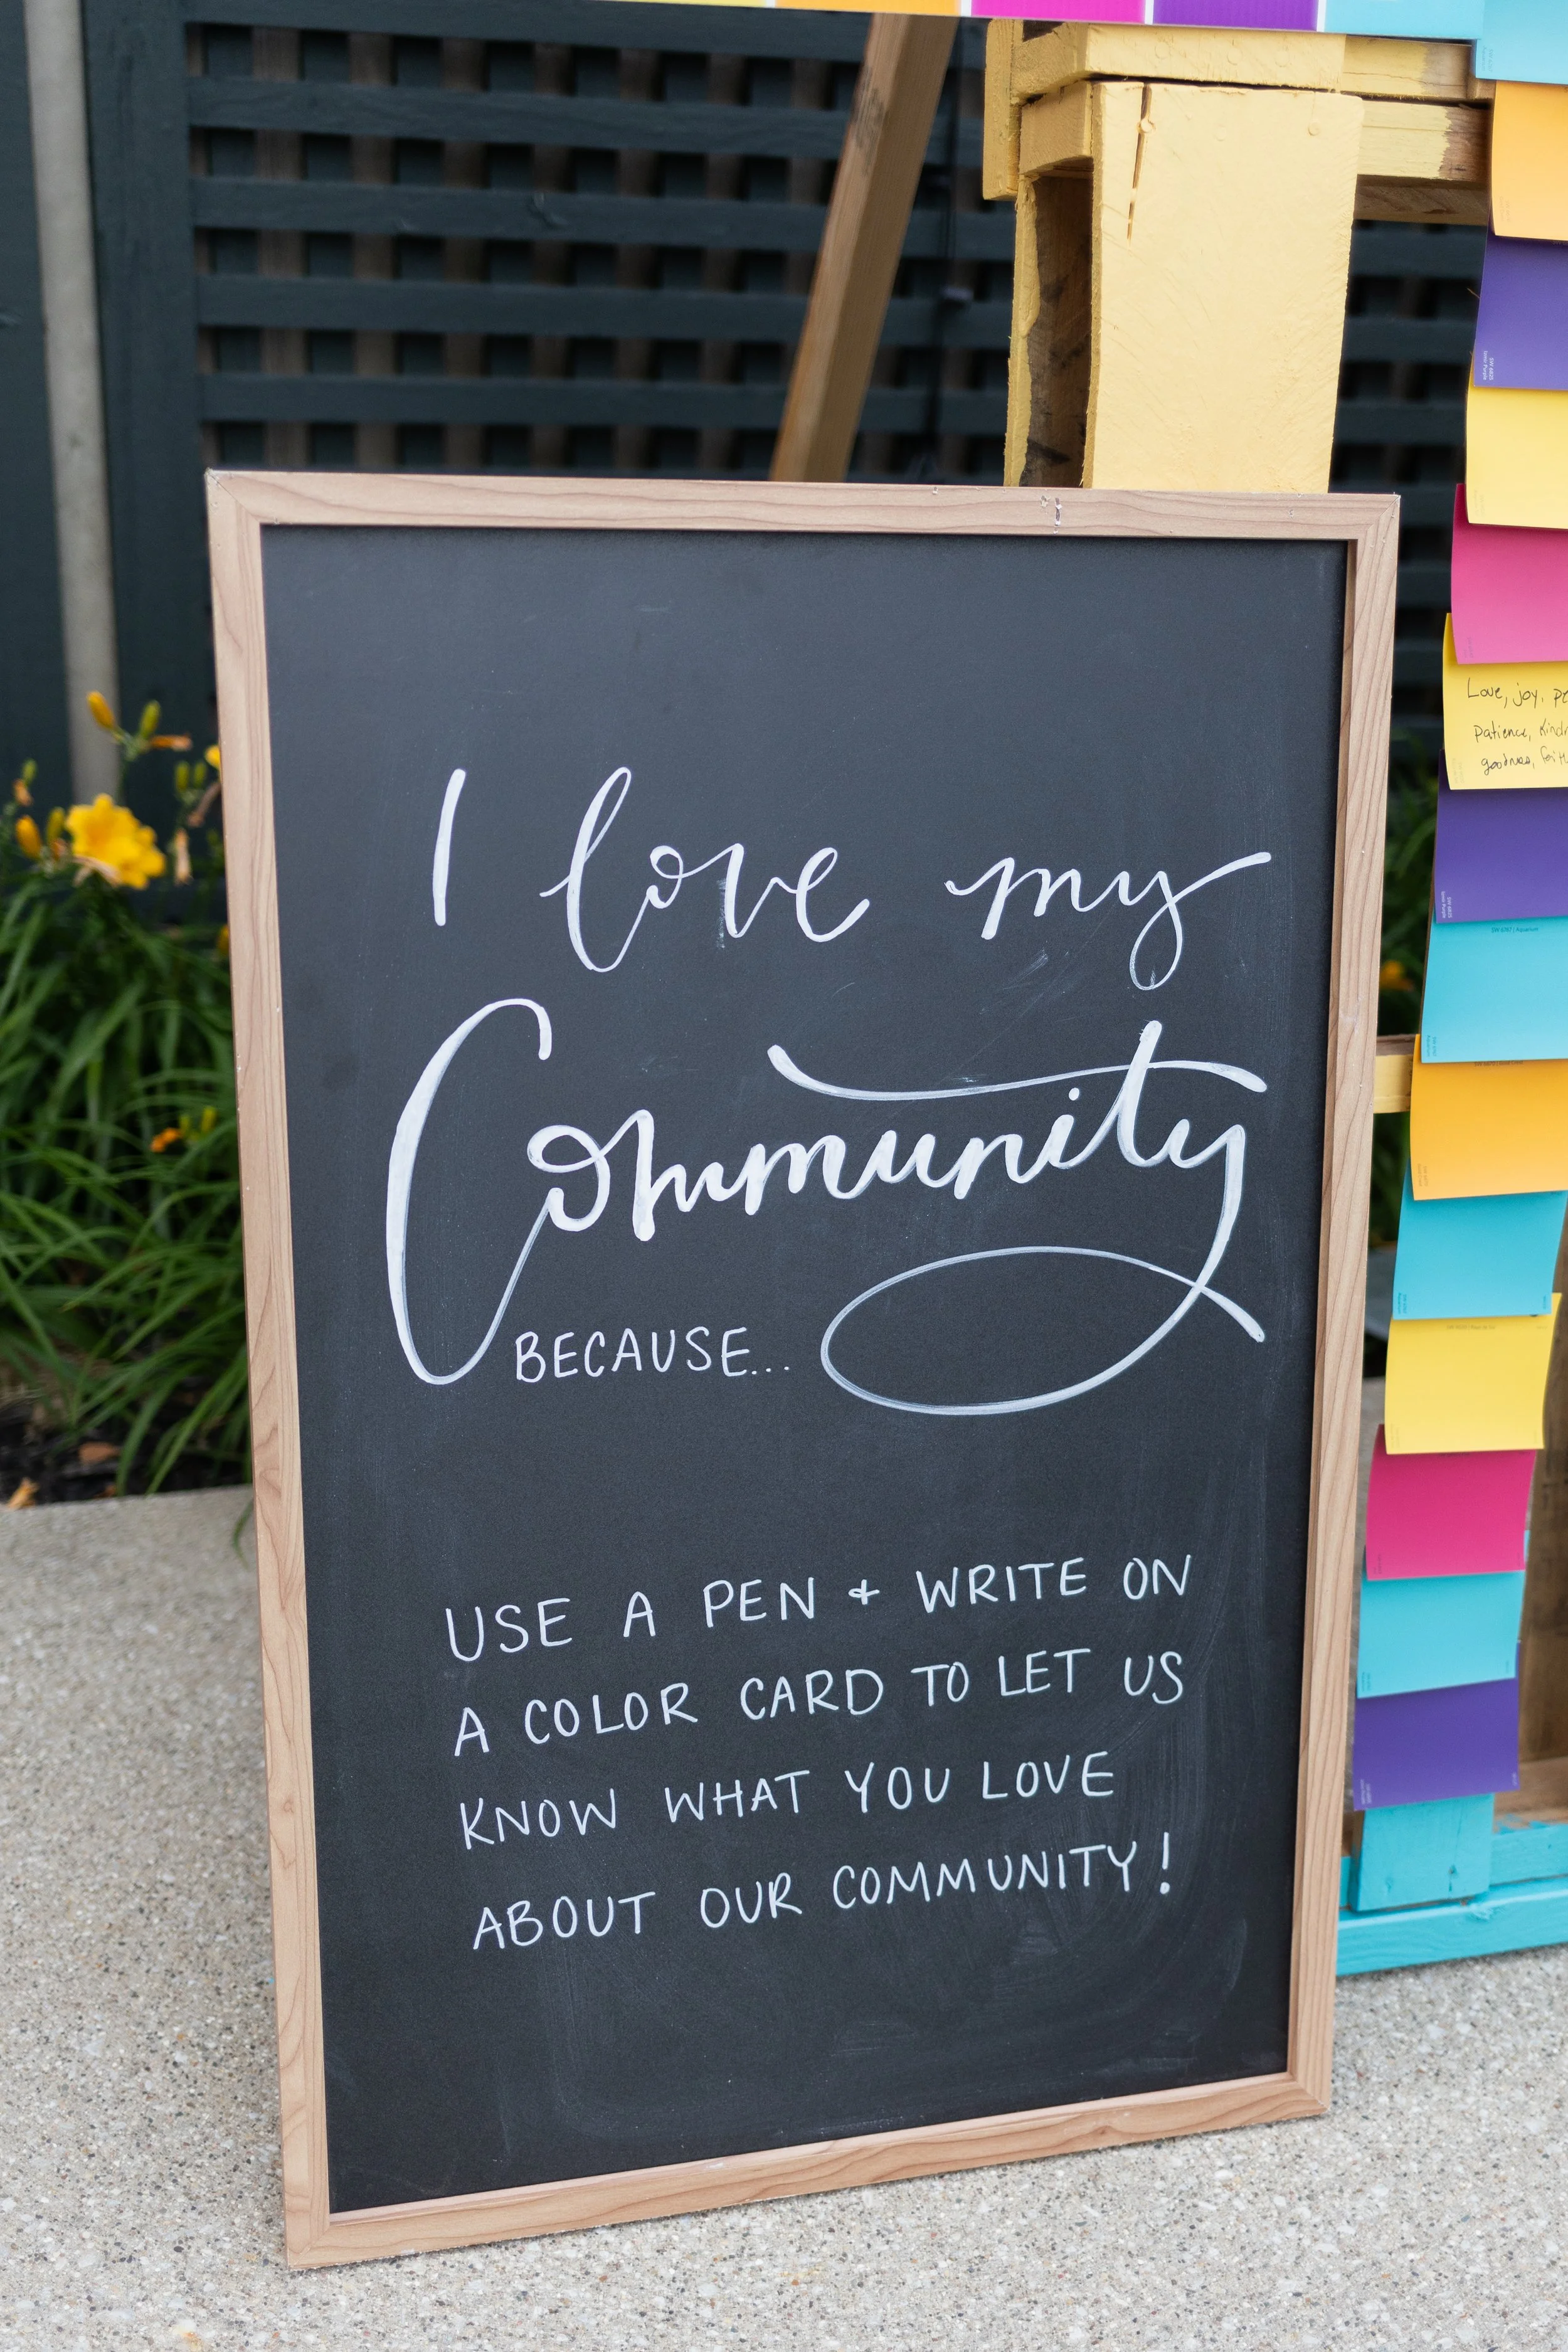 I love my
Community
BECAUSE...
USE A PEN + WRITE ON
A COLOR CARD TO LET US
KNOW WHAT YOU LOVE
ABOUT OUR COMMUNITY!
Love, joy,
patience,
goodness,
SW 6767 | Aquarium